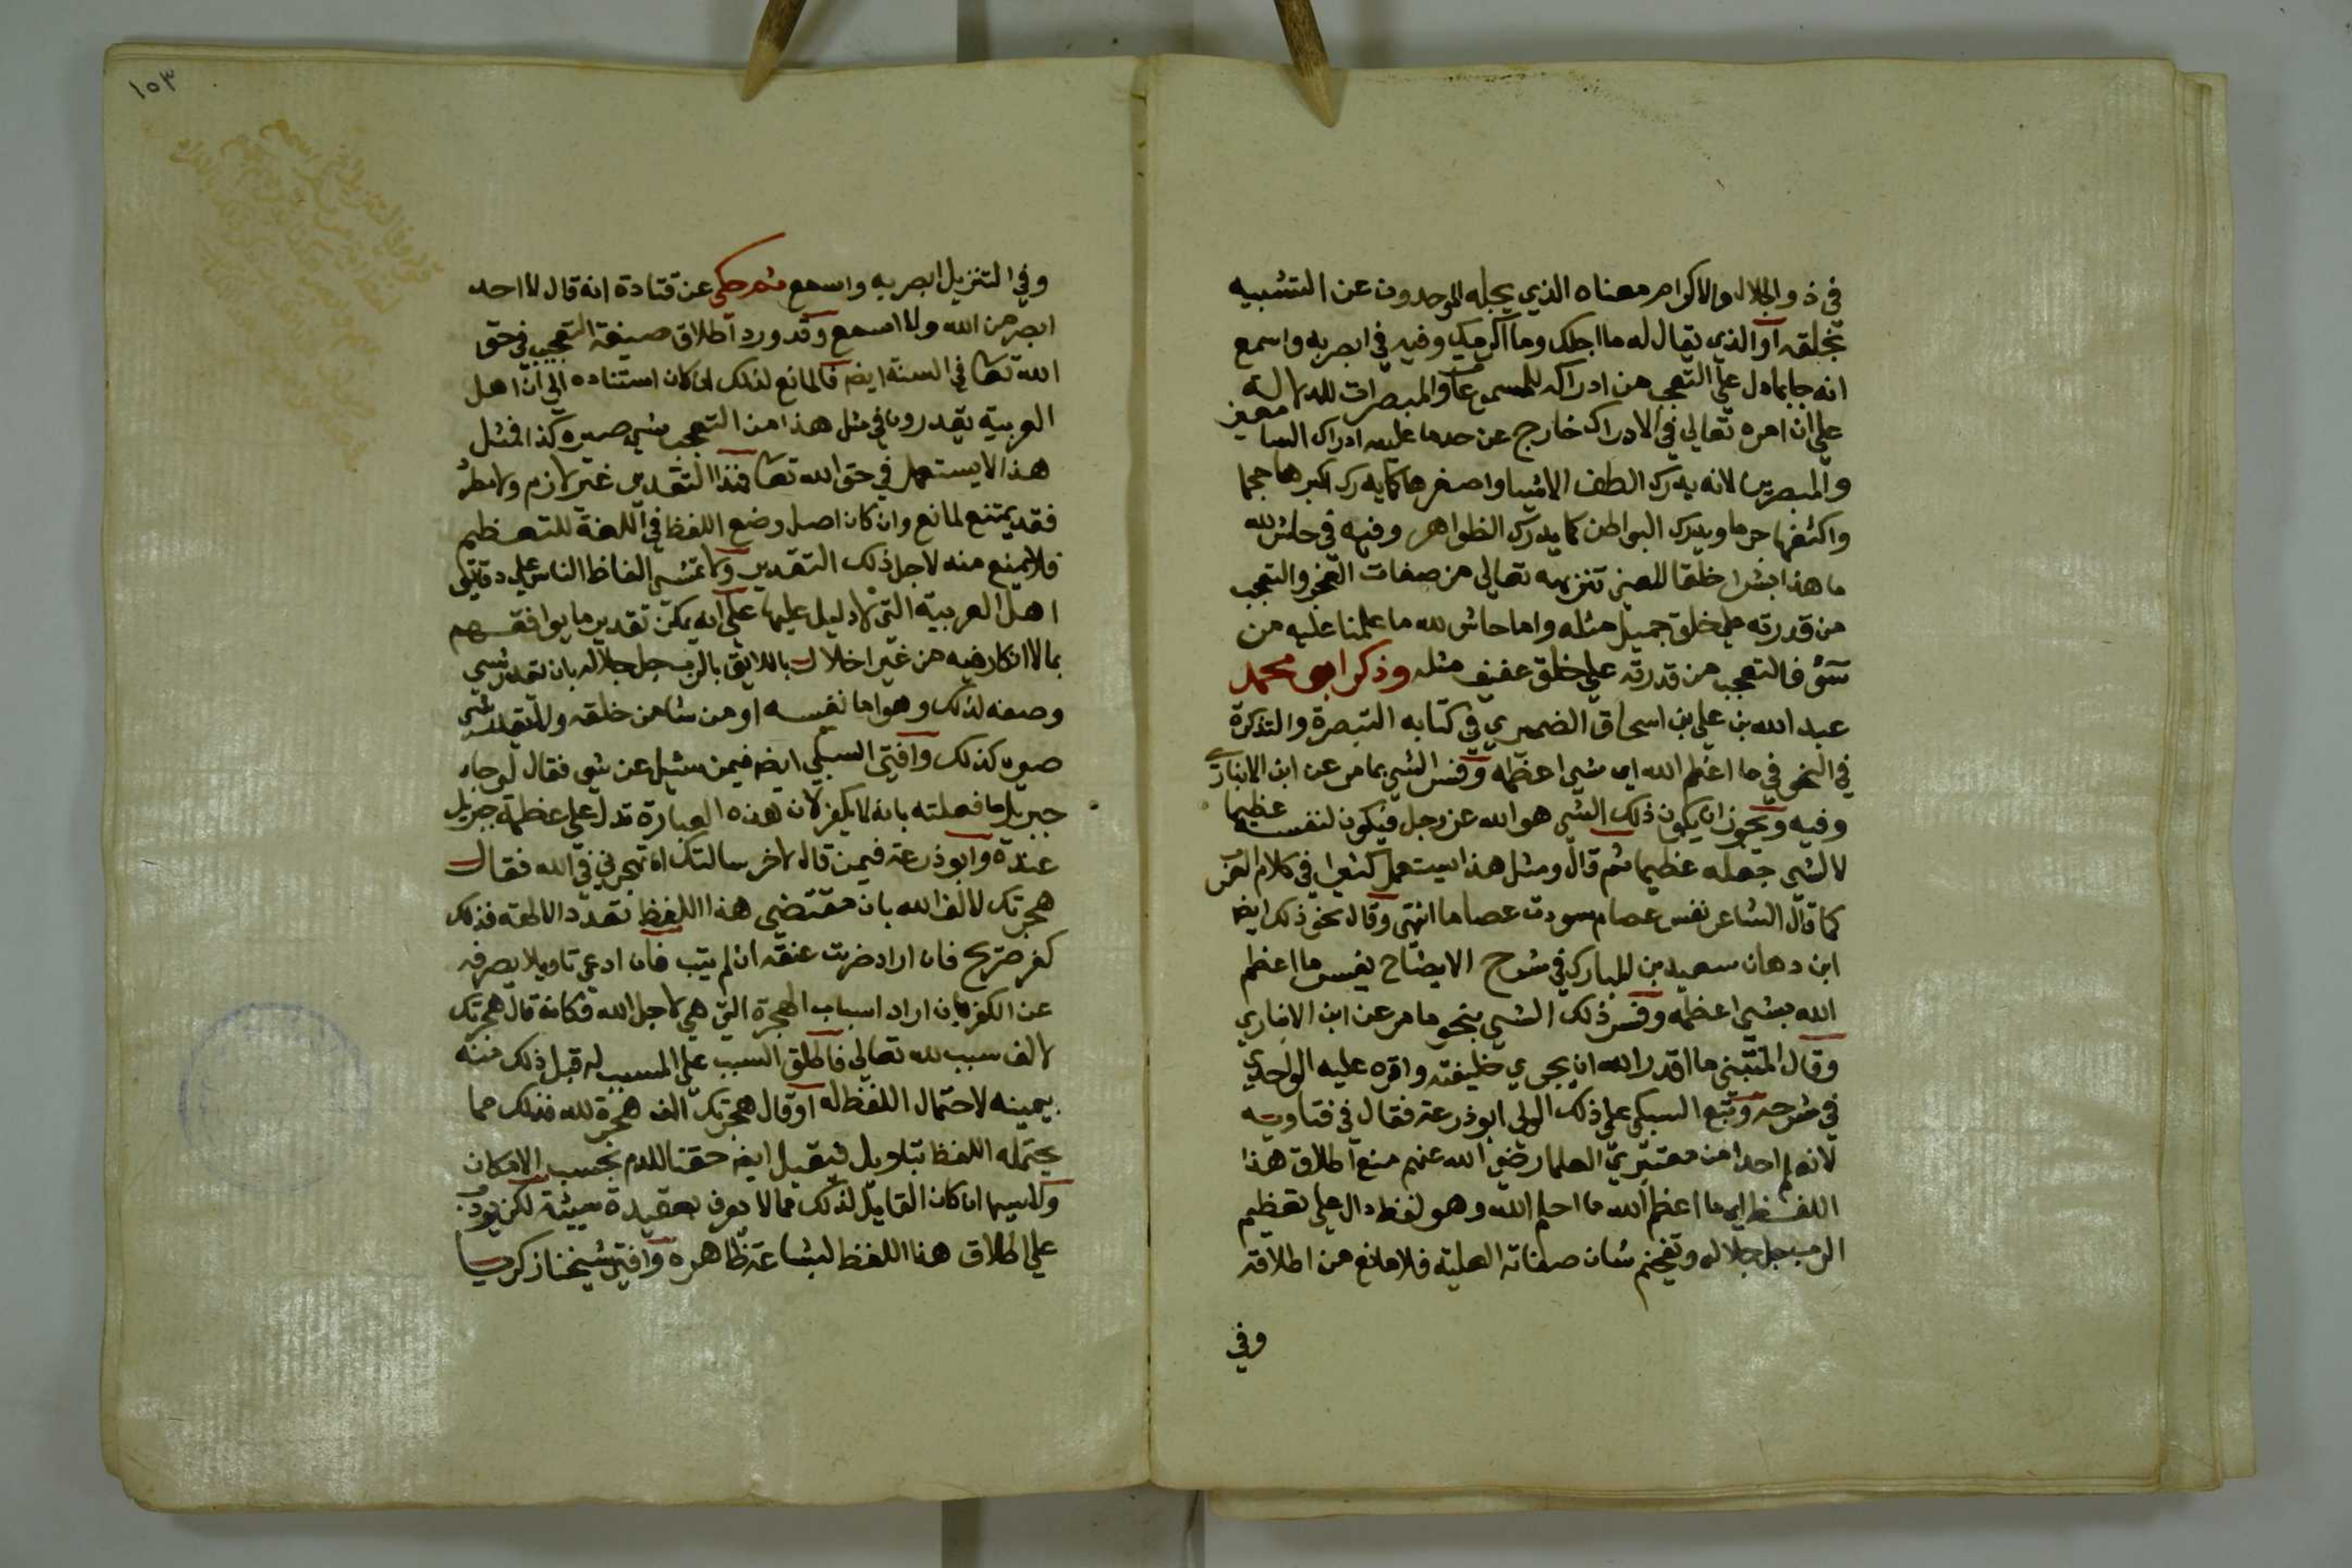 في ذو الجلال والاكرام معناه الذي يجله الموحدون عن التشبيه
بخلقه او الذي يقال له ما اجلك وما اكرمك وفيه في ابصر به واسمع
انه جا بما دل علي التعجب من ادراكه للمسموعات والمبصرات للدلالة
علي ان امره تعالي في الادراك خارج عن حد ما عليه ادراك السامعين
والمبصرين لانه يدرك الطف الاشيا واصغرها كما يدرك اكبرها حجما
واكثفها جرما ويدرك البواطن كما يدرك الظواهر وفيه في حاش لله
ما هذا بشرا خلقا للعين تنزيهه تعالي من صفات العجز والتعجب
من قدرته علي خلق جميل مثله واما حاش لله ما علمنا عليه من
سوء فالتعجب من قدرته علي خلق عفيف مثله وذكر ابو محمد
عبد الله بن علي بن اسحاق الضميري في كتابه التبصرة والتذكرة
في النحو في ما اعظم الله اي شي اعظمه وفسر الشي بما مر عن ابن الانباري
وفيه ويجوز ان يكون ذلك الشي هو الله عز وجل فيكون لنفسه عظيما
لا لشي جعله عظيما ثم قال ومثل هذا يستعمل كثيرا في كلام العرب
كما قال الشاعر نفس عصام سودت عصاما انتهى وقال نحو ذلك ايضا
ابن دهان سعيد بن المبارك في شرح الايضاح يفسر ما اعظم
الله بشي اعظمه وفسر ذلك الشي بنحو ما مر عن ابن الانباري
وقال المتنبي ما اقدر الله ان يجري خليفته واقره عليه الواحدي
في شرحه وتبع السبكي علي ذلك الولي ابو ذرعة فقال في فتاويه
لا نعلم احدا من معتبري العلما رضي الله عنهم منع اطلاق هذا
اللفظ اي ما اعظم الله ما احلم الله وهو لفظ دال علي تعظيم
الرب جل جلاله وتفخيم شان صفاته العلية فلا مانع من اطلاقه
وفي
١٥٣
وفي التنزيل ابصر به واسمع ثم حكي عن قتادة انه قال لا احد
ابصر من الله ولا اسمع وقد ورد اطلاق صيغة التعجب في حق
الله تعا في السنة ايضا فالمانع لذلك ان كان استناده الي ان اهل
العربية يقدرون في مثل هذا من التعجب شي صيره كذا فمثل
هذا لا يستعمل في حق الله تعا فهذا التقدير غير لازم ولا مطرد
فقد يمتنع لمانع وان كان اصل وضع اللفظ في اللغة للتعظيم
فلا يمنع منه لاجل ذلك التقدير ولا تمشي الفاظ الناس علي دقايق
اهل العربية التي لا دليل عليها علي انه يمكن تقدير ما يوافقهم
بما لا انكار فيه من غير اخلال باللايق بالرب جل جلاله بان تقدر شي
وصفه لذلك وهو اما نفسه او من شا من خلقه ولا تقدر شي
صيره كذلك وافتي السبكي ايضا فيمن سئل عن شي فقال لو جاء
جبريل ما فعلته بانه لا يكفر لان هذه العبارة تدل علي عظمة جبريل
عنده وابو ذرعة فيمن قال لاخر سالتك ان تهجرني في الله فقال
هجرتك لالف الله بان مقتضي هذا اللفظ تعدد الالهة فذلك
كفر صريح فان اراد ضربت عنقه ان لم يتب فان ادعي تاويلا يصرفه
عن الكفر بان اراد اسباب الهجرة التي هي لاجل الله فكانه قال هجرتك
لالف سبب لله تعالي فاطلق السبب علي المسبب له قبل ذلك منه
بيمينه لاحتمال اللفظ له او قال هجرتك الف هجرة لله فذلك مما
يحتمله اللفظ بتاويل فيقبل ايضا حقنا للدم بحسب الامكان
ولا سيما ان كان القايل لذلك مما لا يعرف بعقيدة سيئة لكن يودب
علي اطلاق هذا اللفظ لبشاعة ظاهره وافتي شيخنا زكريا